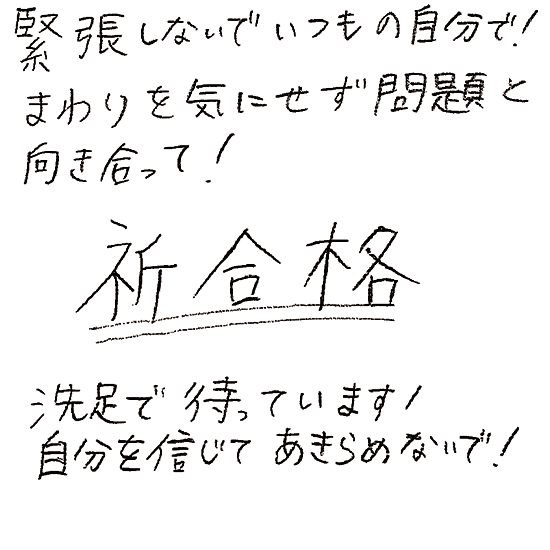 緊張しないでいつもの自分で!
まわりを気にせず問題と
向き合って!
祈合格
洗足で待っています!
自分を信じてあきらめないで!